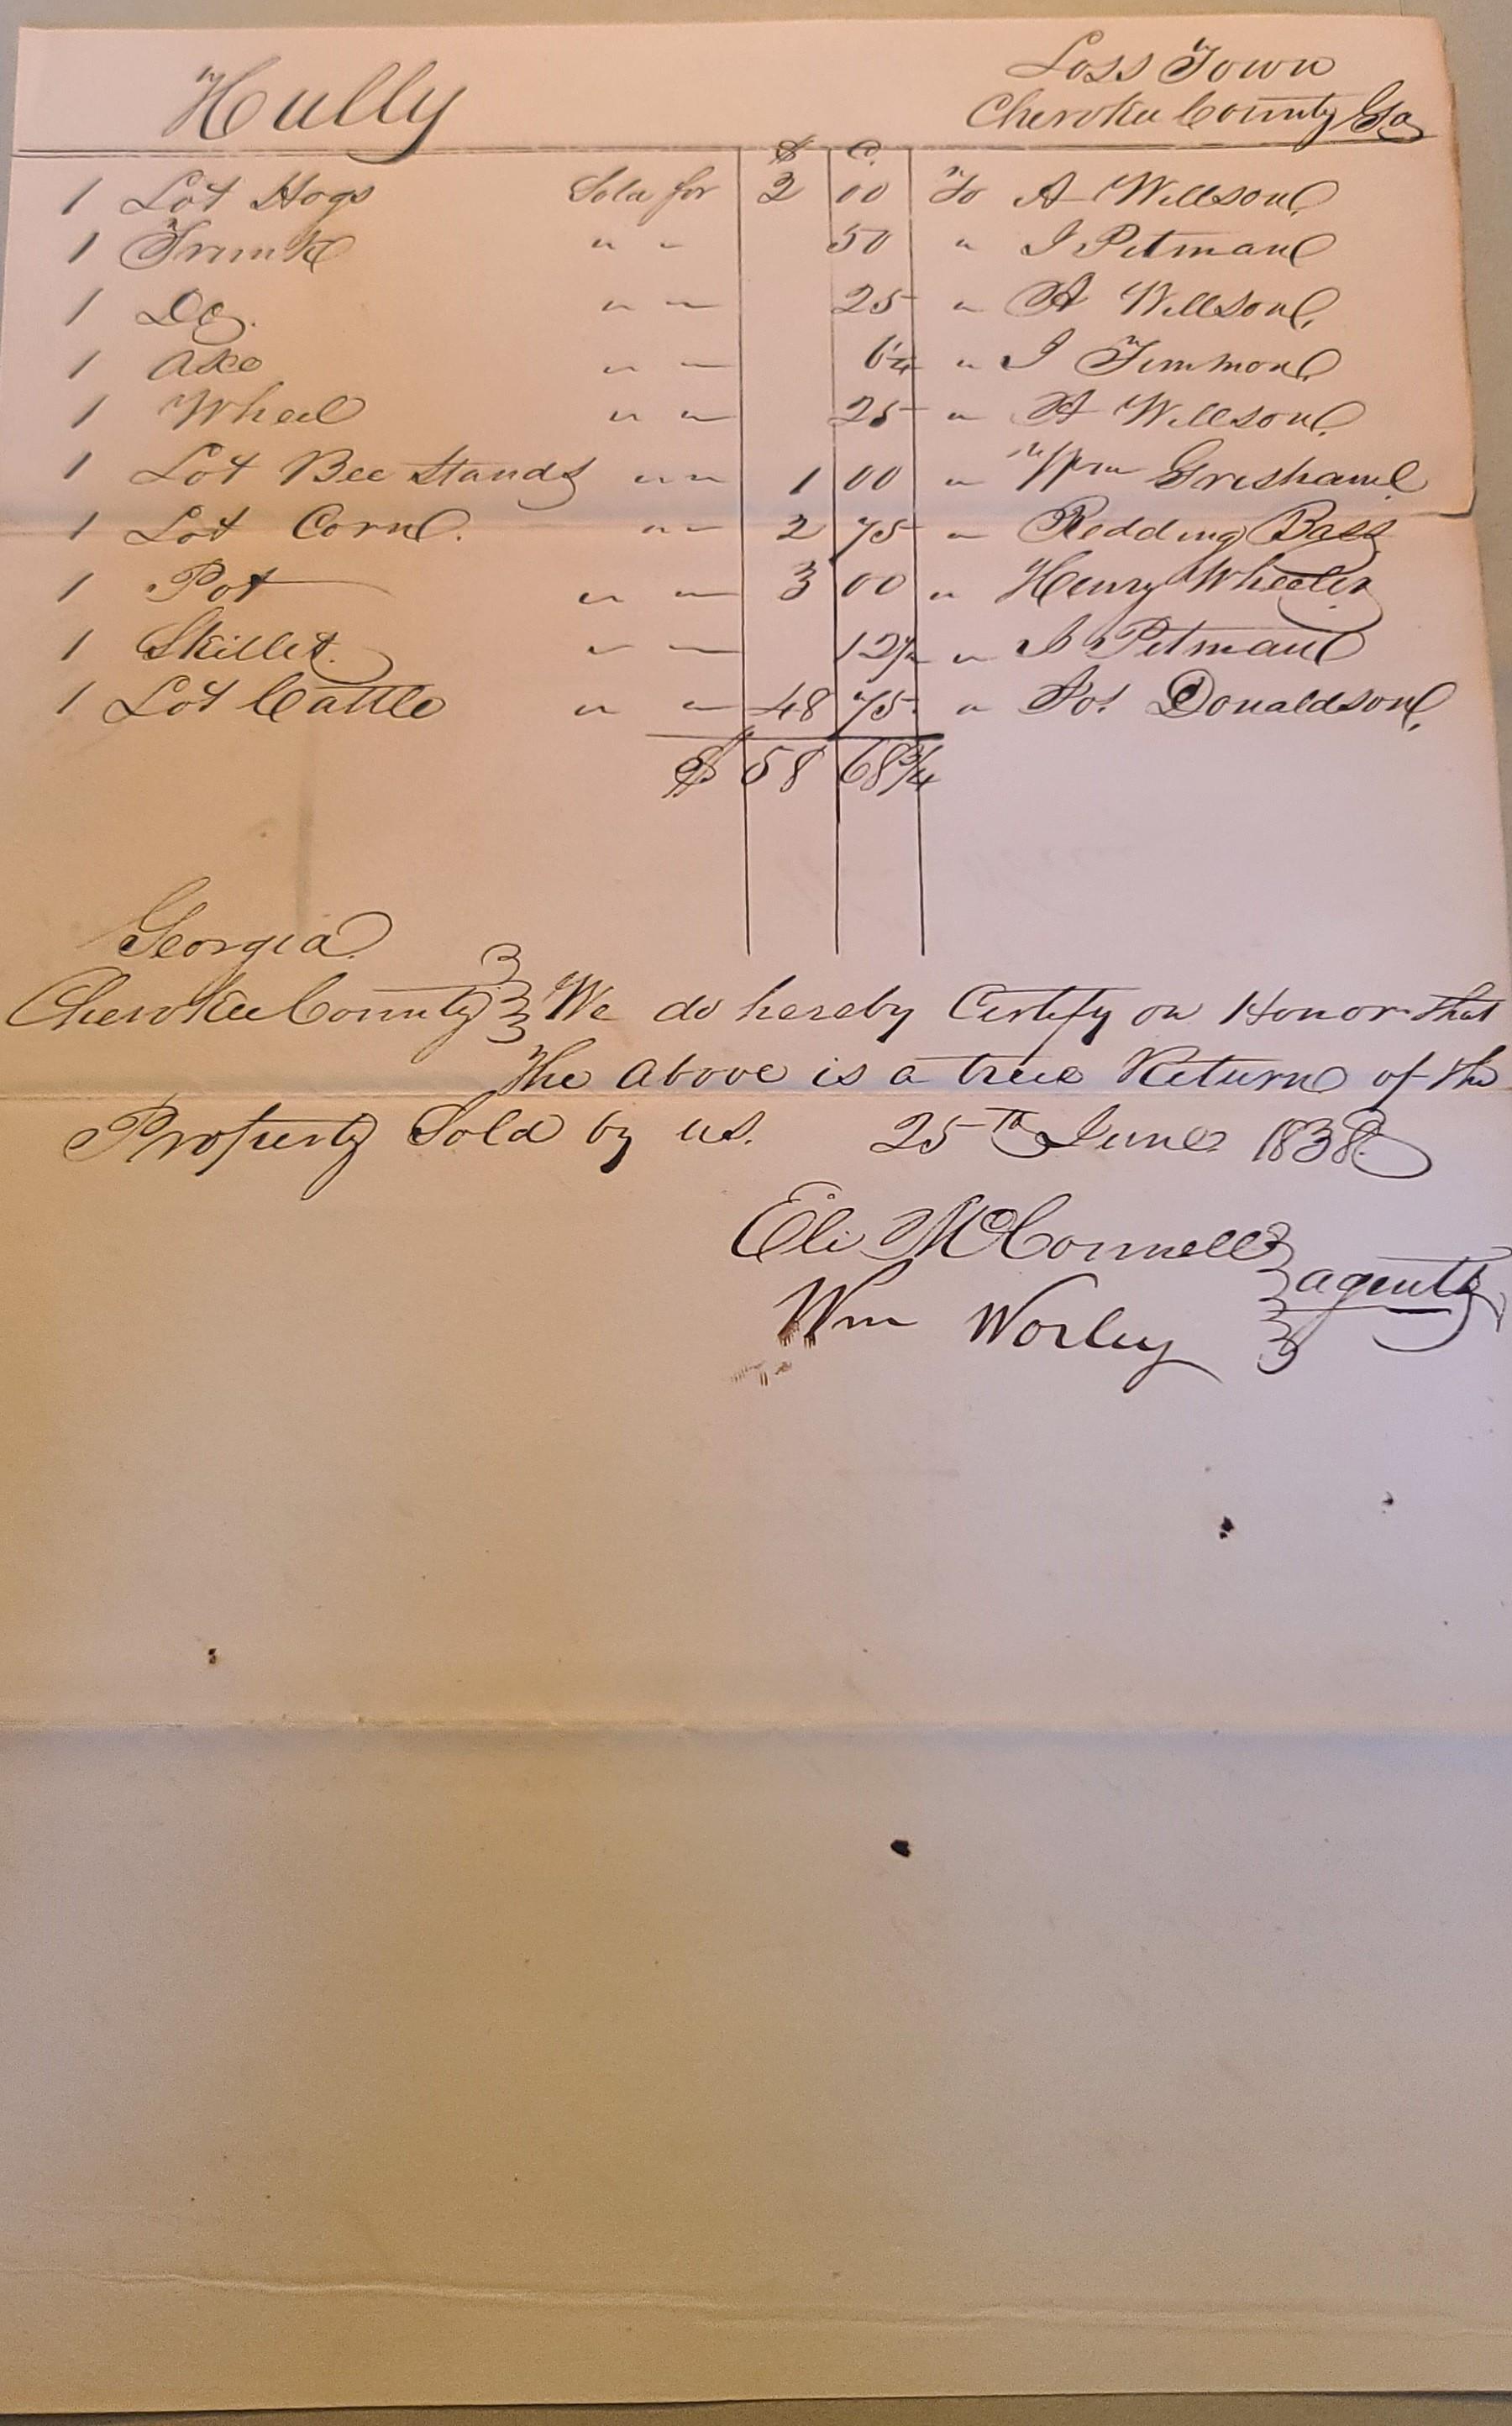 Hully
Loss Town
Cherokee County Ga
$ C.
1 Lot Hogs Sold for 2 00 To A Willson
1 Trunk " " 50 " I Pitman
1 Do. " " 25 " A Willson
1 Axe " " 6¼ " I Timmon
1 Wheel " " 25 " A Willson
1 Lot Bee Stands " " 1 00 " Wm Grisham
1 Lot Corn. " " 2 75 " Redding Bass
1 Pot " " 3 00 " Henry Wheeler
1 Skillet " " 12½ " I Pitman
1 Lot Cattle " " 48 75 " Jos. Donaldson
$ 58 68¾
Georgia
Cherokee County We do hereby Certify on Honor that
the above is a true Return of the
Property Sold by us. 25th June 1838
Eli McConnell
Wm Worley agents